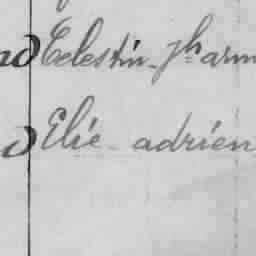 Celestin Jh arm
Elie adrien